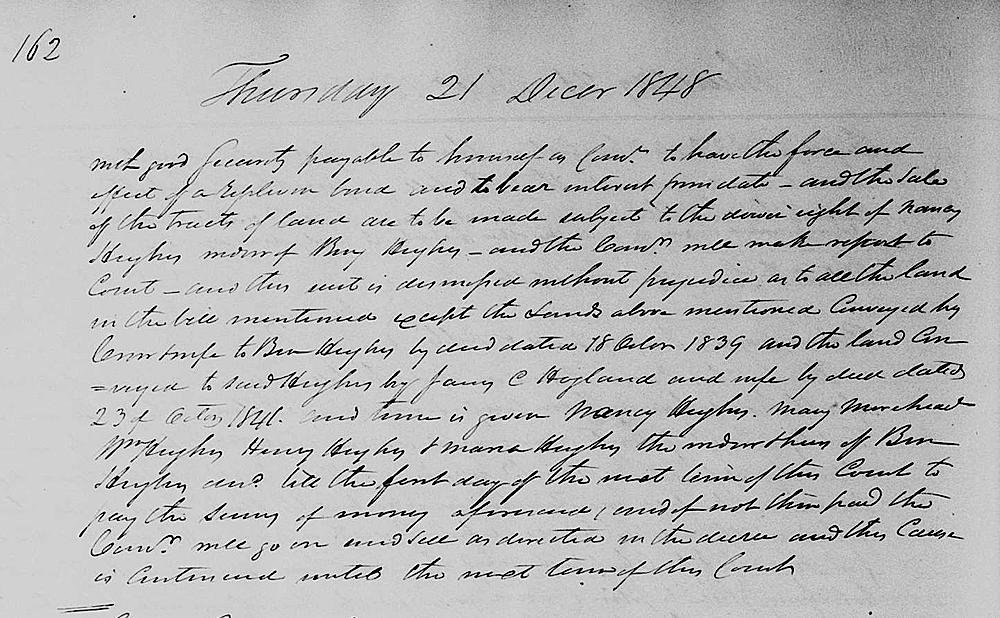 162
Thursday 21 Decer 1848
with good Security payable to himself as Comr. to have the force and
effect of a Replevin bond and to bear interest from date – and the Sale
of the tracts of land are to be made subject to the dower right of Nancy
Hughes widow of Ben Hughes – and the Comr. will make report to
Court – and this suit is dismissed without prejudice as to all the land
in the bill mentioned except the Lands above mentioned Conveyed by
& wife to Ben Hughes by deed dated 18 Octor 1839 and the land Con
=veyed to said Hughes by James C Hogland and wife by deed dated
23d Octor 1841. and time is given Nancy Hughes. Mary Morehead
Wm Hughes Henry Hughes & Maria Hughes the widow & heirs of Ben
Hughes decd. till the first day of the next term of this Court to
pay the sums of money aforesaid, and if not then paid the
Comr. will go on and sell as directed in the decree and this Cause
is Continued until the next term of this Court